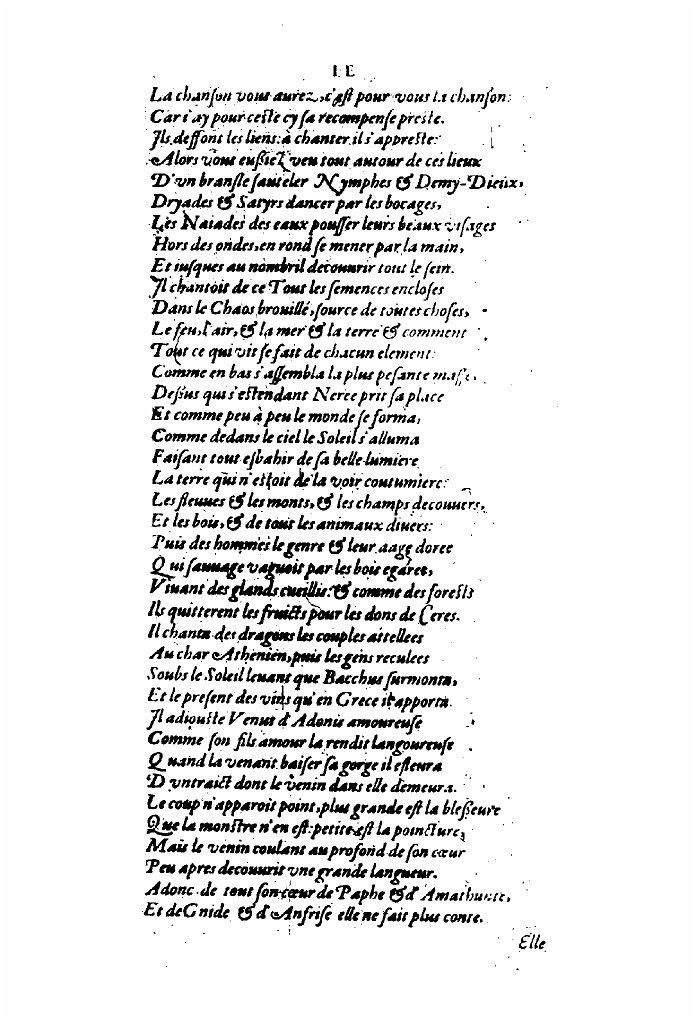 LE
La chanſon vous aurez, c'eſt pour vous la chanſon:
Car i'ay pour ceſte cy ſa recompenſe preſte.
Ils deffont les liens: à chanter il s'appreſte:
Alors vous euſsiez veu tout autour de ces lieux
D'vn branſle ſauteler Nymphes & Demy-Dieux,
Dryades & Satyrs dancer par les bocages,
Les Naiades des eaux pouſſer leurs beaux viſages
Hors des ondes, en rond ſe mener par la main,
Et iuſques au nombril decouurir tout le ſein.
Il chantoit de ce Tout les ſemences encloſes
Dans le Chaos brouillé, ſource de toutes choſes,
Le feu, l'air, & la mer & la terre & comment
Tout ce qui vit ſe fait de chacun element:
Comme en bas s'aſſembla la plus peſante maſſe,
Deſſus qui s'eſtendant Neree prit ſa place
Et comme peu à peu le monde ſe forma,
Comme dedans le ciel le Soleil s'alluma
Faiſant tout eſbahir de ſa belle lumiere
La terre qui n'eſtoit de la voir coutumiere:
Les fleuues & les monts, & les champs decouuers,
Et les bois, & de tout les animaux diuers:
Puis des hommes le genre & leur aage doree
Qui ſauuage vaguoit par les bois egaree,
Viuant des glands cueillis: & comme des foreſts
Ils quitterent les fruicts pour les dons de Ceres.
Il chanta des dragons les couples attellees
Au char Athenien, puis les gens reculees
Soubs le Soleil leuant que Bacchus ſurmonta,
Et le preſent des vins qu'en Grece il apporta.
Il adiouſte Venus d'Adonis amoureuſe
Comme ſon fils amour la rendit langoureuſe
Quand la venant baiſer ſa gorge il efleura
D'vn traict dont le venin dans elle demeura.
Le coup n'apparoit point, plus grande eſt la bleſſeure
Que la monſtre n'en eſt: petite eſt la poincture,
Mais le venin coulant au profond de ſon cœur
Peu apres decouurit vne grande langueur.
Adonc de tout ſon cœur de Paphe & d'Amathunte,
Et de Gnide & d'Anfriſe elle ne fait plus conte.
Elle